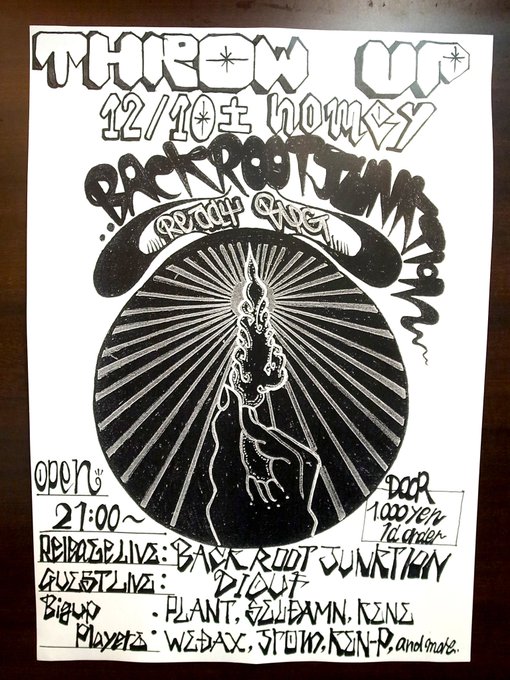 THROW UP
12/10土 nomey
BACK ROOT JUNKTION
Ready
OPEN
21:00~
DOOR
1.000 yen
1d order
RELEASE LIVE: BACK ROOT JUNKTION
GUEST LIVE: DIGUF
Bigup : PLANT, SELDAMN, KENE
Players : WEDAX, JROM, KEN-P, and more.